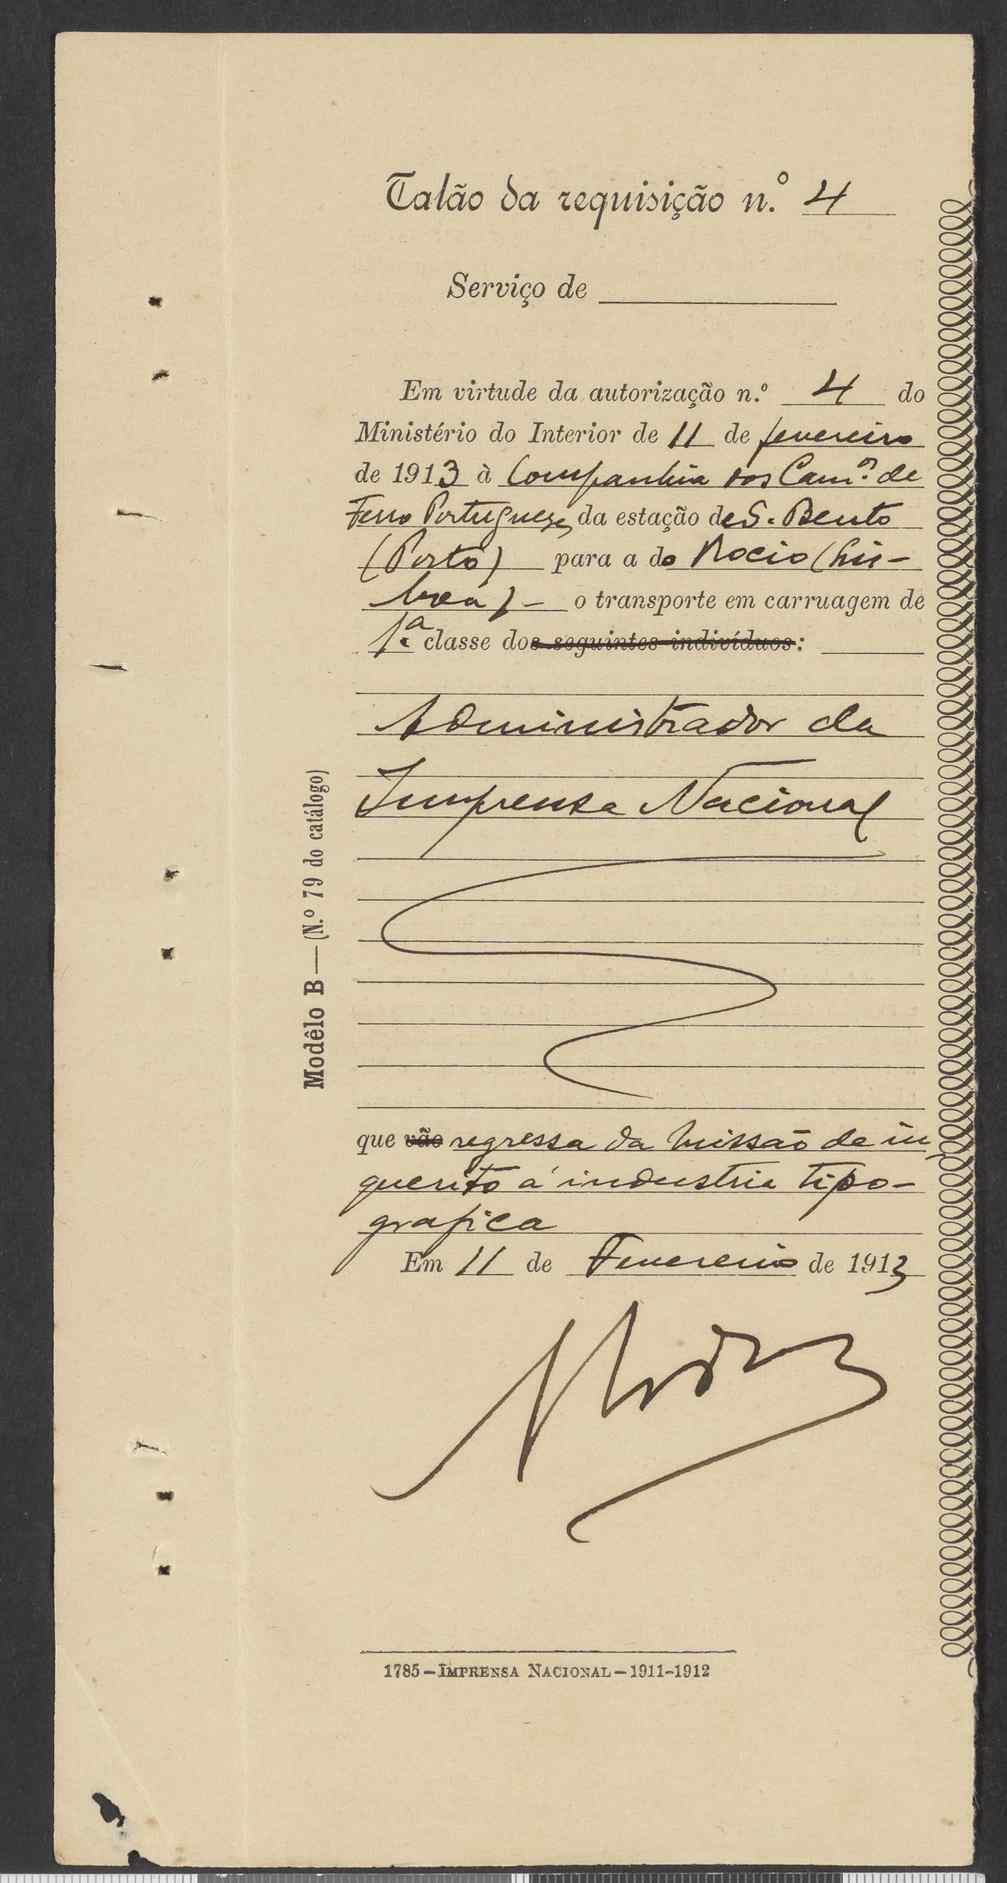 Talão da requisição n.º 4
Serviço de
Em virtude da autorização n.º 4 do
Ministério do Interior de 11 de fevereiro
de 1913 à Companhia dos Cam.os de
Ferro Portugueses da estação de S. Bento
(Porto) para a do Rocio (Lis-
boa) - o transporte em carruagem de
1.ª classe dos seguintes indivíduos:
Administrador da
Imprensa Nacional
que vão regressa da missão de in-
querito á industria tipo-
grafica
Em 11 de Fevereiro de 1913
Modêlo B — (N.º 79 do catálogo)
1785 – IMPRENSA NACIONAL – 1911-1912